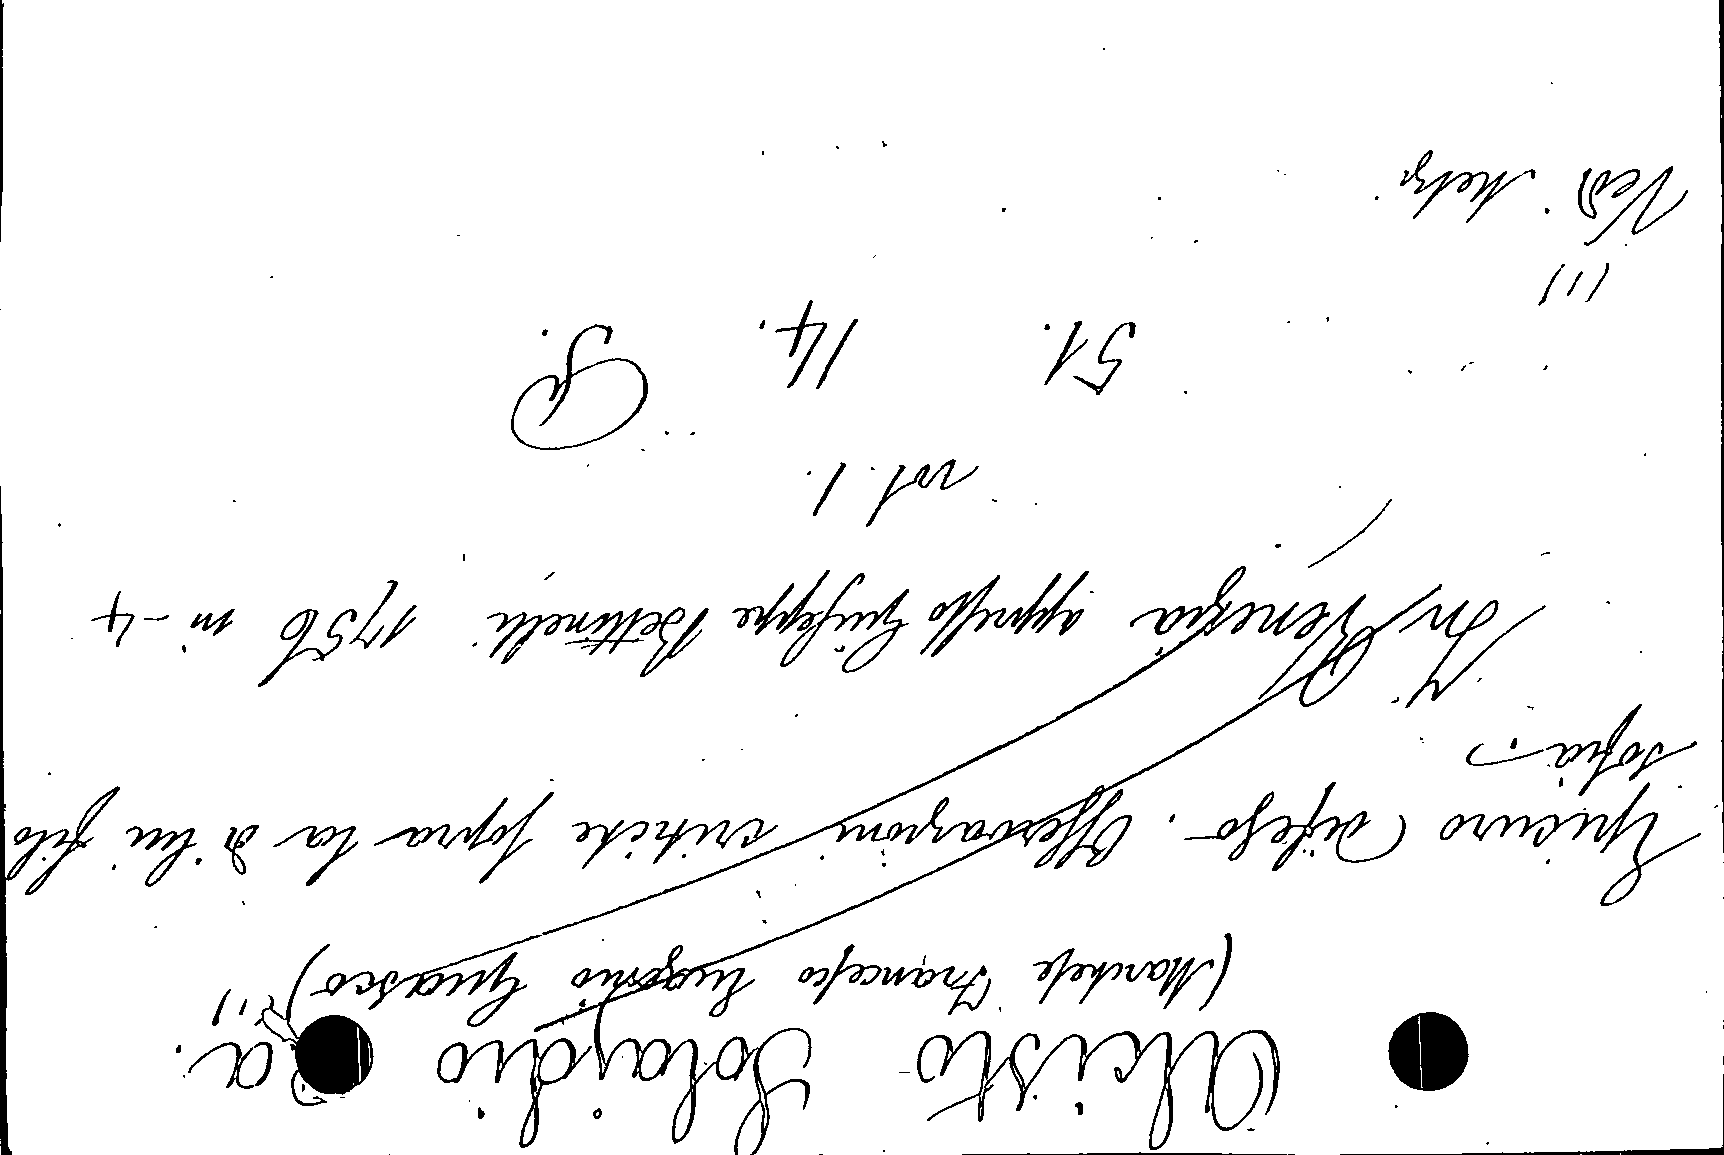 Alcisto Solajdio P. A.
(Marchese Francesco Eugenio Guasco) (1)
Epicuro difeso. Osservazioni critiche sopra la di lui filo
sofia.
In Venezia appresso Giuseppe Bettinelli 1756 in-4
vol. 1.
51. 14.
(1)
Vedi Melzi